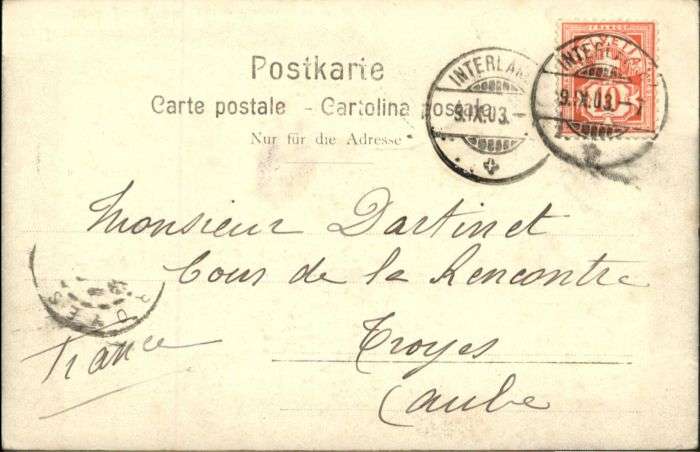 FRANCO
HELVETIA
10
INTERLAKEN
9.IX.03.-7
INTERLAK
9.IX.03.-
Postkarte
Carte postale - Cartolina postale
Nur für die Adresse
Monsieur Dartinet
Cour de la Rencontre
Troyes
Caube
France